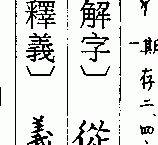 一期存二、四
解字〕從
釋義〕義